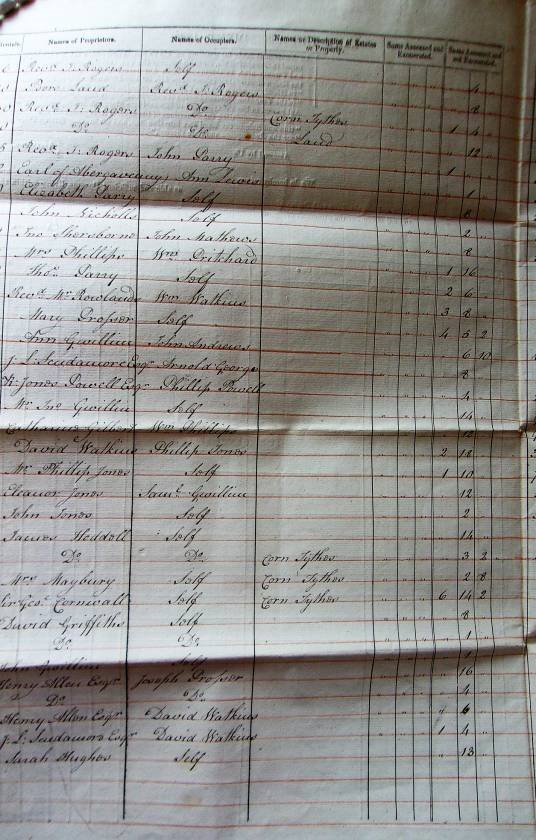 Names of Proprietors. Names of Occupiers. Names or Description of Estates or Property. Sums Assessed and Exonerated. Sums Assessed and not Exonerated.
Revd. J. Rogers Self 4
Poors Land Revd. J. Rogers 8
Revd. J. Rogers Do Corn Tythes
Do Do Land 1 4
Revd. J. Rogers John Parry 12
Earl of Abergavenny Ann Lewis 1
Elizabeth Parry Self 1
John Nicholls Self 8
Jno Sherborne John Mathews 2
Mrs Phillips Wm Pritchard 8
Thos Parry Self 1 16
Revd. Mr Rowlands Wm Watkins 2 6
Mary Prosser Self 3 8
Ann Gwillim John Andrews 4 5 2
J. L. Scudamore Esqr Arnold George 6 10
Jones Powell Esqr Phillip Powell 8
Mr Jno Gwillim Self 4
Catharine Gilbert Wm Phillips 14
David Watkins Phillip Jones 12
Mr Phillip Jones Self 2 12
Eleanor Jones Saml Gwillim 1 10
John Jones Self 12
James Hoddell Self 2
Do Do Corn Tythes 14
Mrs Maybury Self Corn Tythes 3 2
Sir Geo. Cornwall Self Corn Tythes 2 8
David Griffiths Self 6 14 2
Do Do 8
John Gwillim Self 1
Henry Allen Esqr Joseph Prosser 1
Do Do 16
Henry Allen Esqr David Watkins 4
J. L. Scudamore Esqr David Watkins 6
Sarah Hughes Self 1 4
13